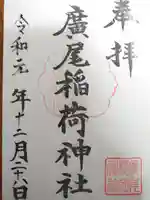 奉拝
廣尾稲荷神社
令和元年十二月二十八日